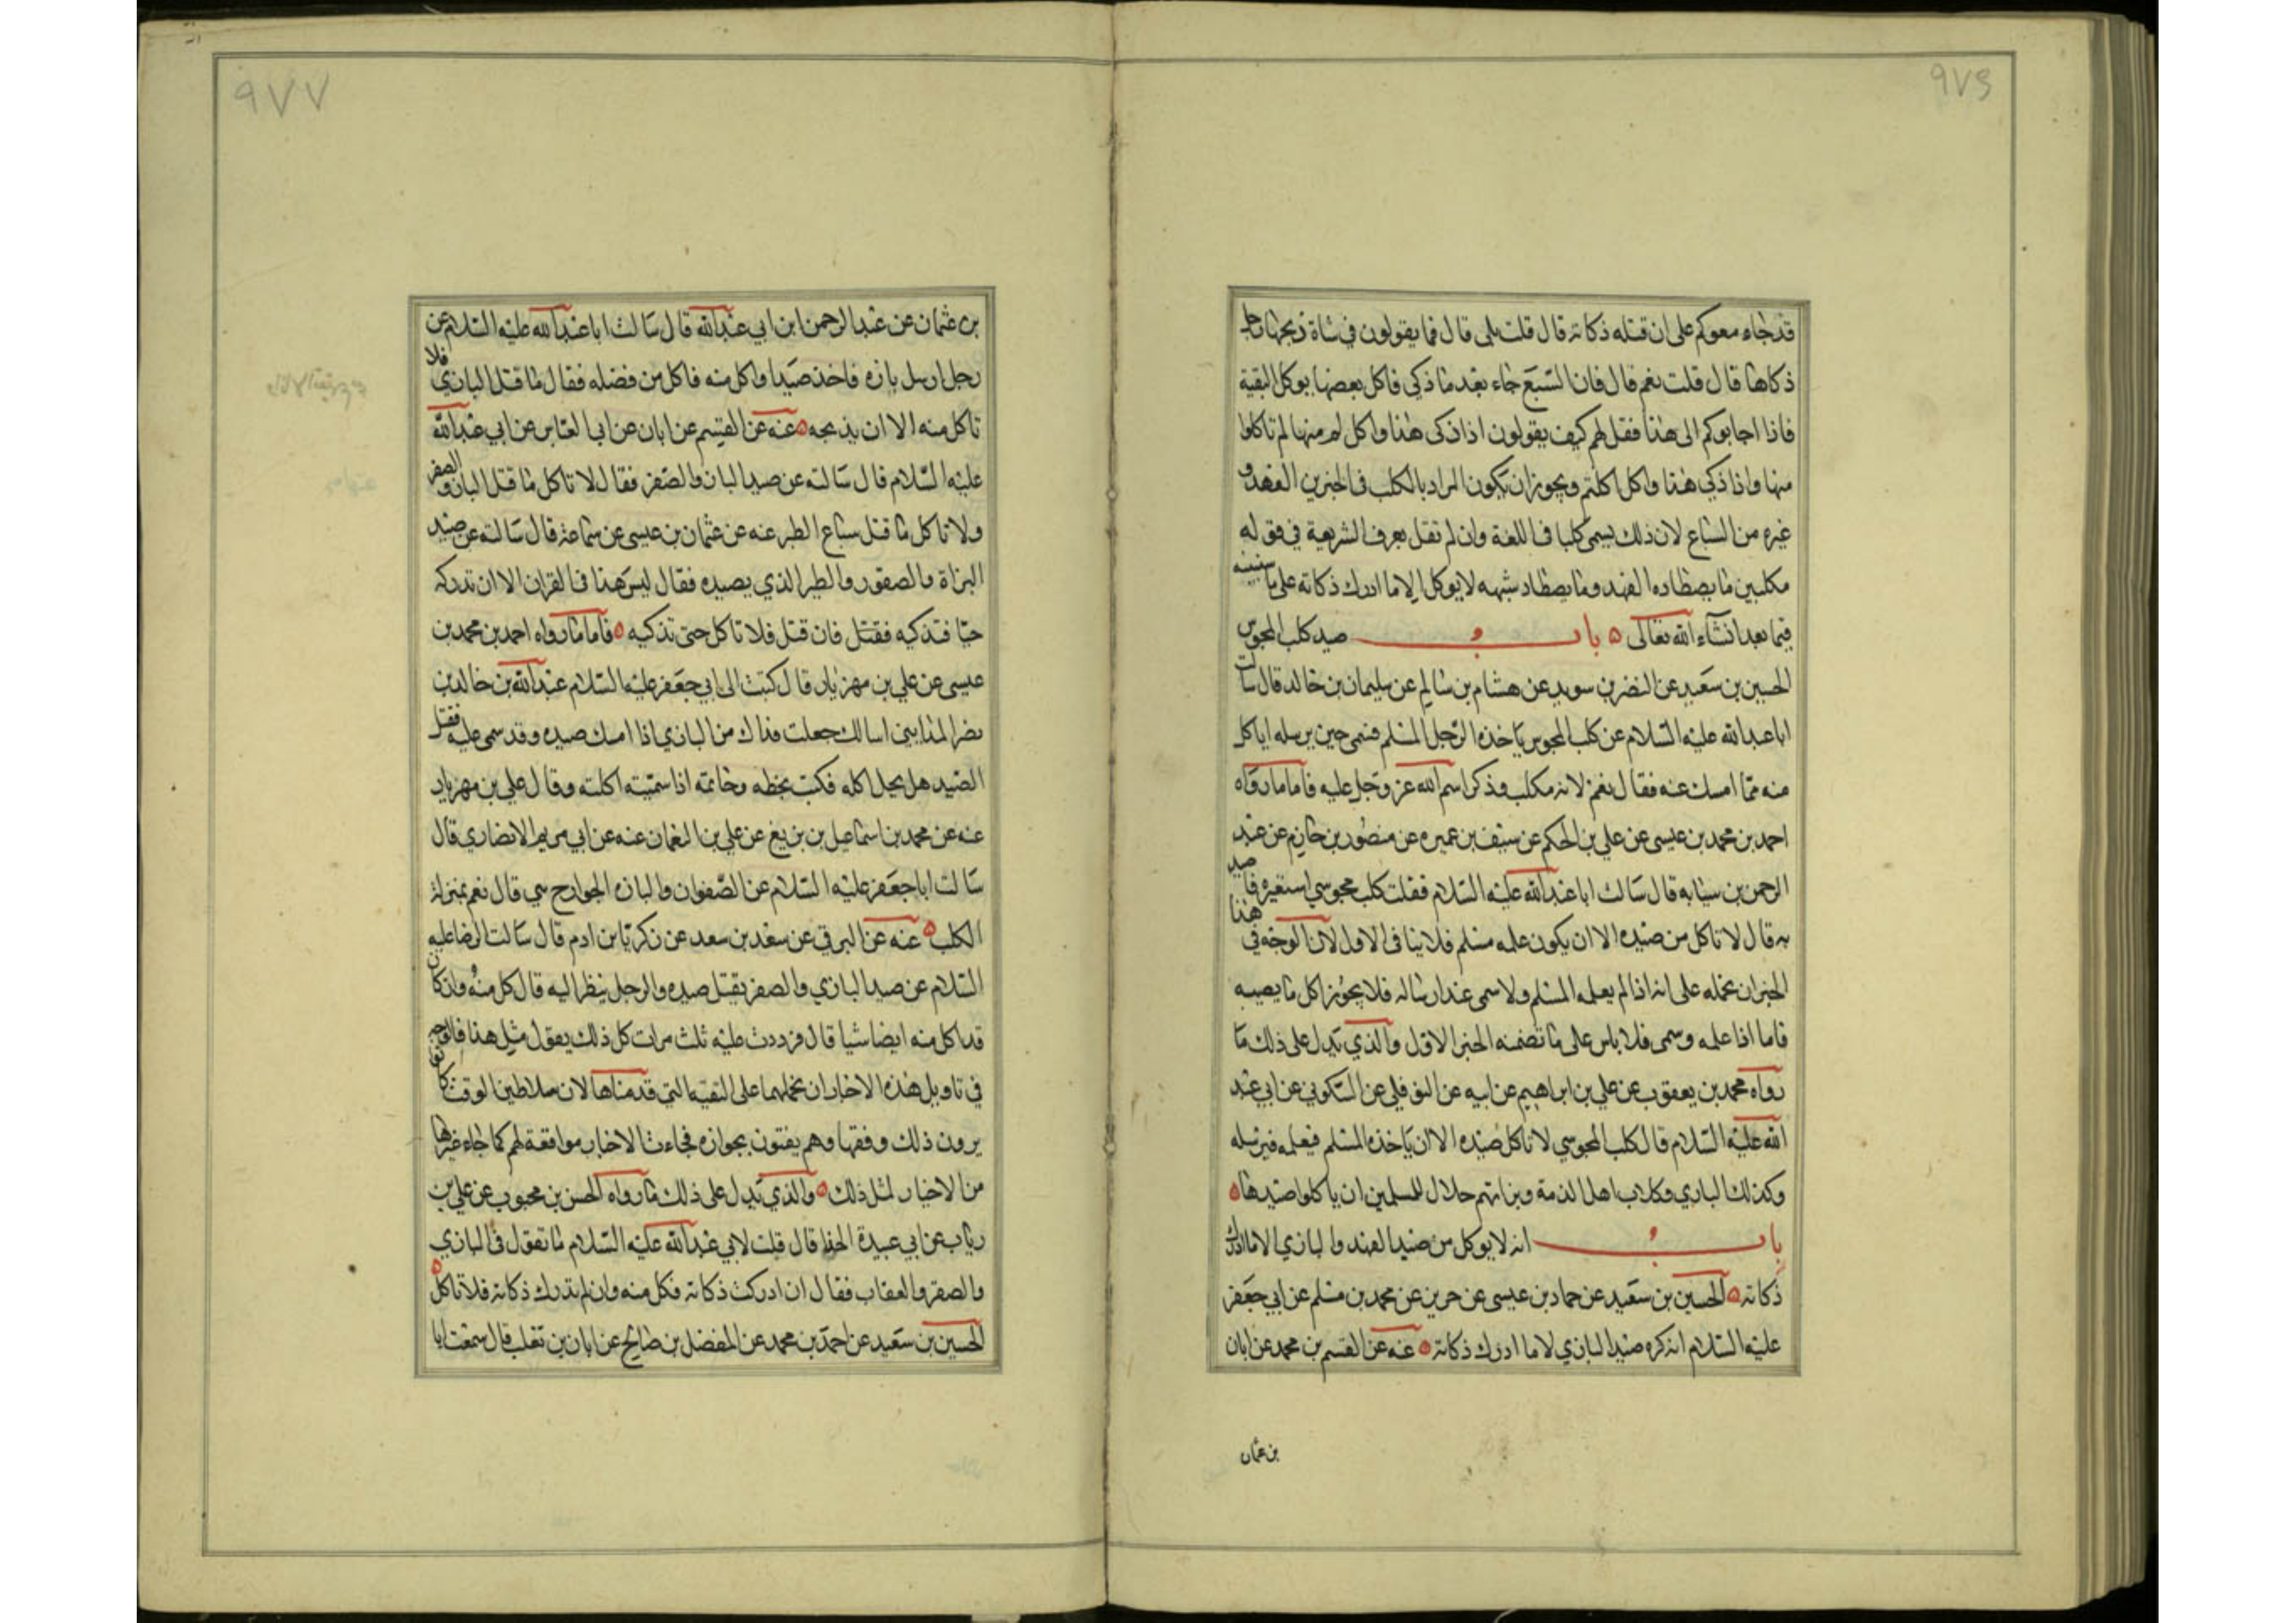 ٩٧٦
قد جاء معوكم على ان قتله ذكاته قال قلت بلى قال فما يقولون في شاة ذبحها رجل
ذكاها قال قلت نعم قال فان السبع جاء بعد ما ذكى فاكل بعضها يوكل البقية
فاذا اجابوكم الى هذا فقل لهم كيف يقولون اذا ذكى هذا واكل لم منها لم تاكلوا
منها واذا ذكى هذا واكل اكلتم ويجوز ان يكون المراد بالكلب في الخبرين الفهد و
غيره من السباع لان ذلك يسمى كلبا في اللغة وان لم تقل بعرف الشريعة في قوله
مكلبين ما يصطاده الفهد وما يصطاد شبهه لا يوكل الا ما ادرك ذكاته على ما سنبينه
فيما بعد انشاء الله تعالى باب صيد كلب المجوس
الحسين بن سعيد عن النضر بن سويد عن هشام بن سالم عن سليمان بن خالد قال سالت
ابا عبد الله عليه السلام عن كلب المجوس ياخذه الرجل المسلم فسمى حين يرسله اياكل
منه مما امسك عنه فقال نعم لانه مكلب وذكر اسم الله عز وجل عليه فاما ما رواه
احمد بن محمد بن عيسى عن علي بن الحكم عن سيف بن عميره عن منصور بن حازم عن عبد
الرحمن بن سيابه قال سالت ابا عبد الله عليه السلام فقلت كلب مجوسي استعيره فاصيد
به قال لا تاكل من صيده الا ان يكون علمه مسلم فلا ينافى الاول لان الوجه في هذا
الخبر ان نحمله على انه اذا لم يعلمه المسلم ولا سمى عند ارساله فلا يجوز اكل ما يصيبه
فاما اذا علمه وسمى فلا باس على ما تضمنه الخبر الاول والذي يدل على ذلك ما
رواه محمد بن يعقوب عن علي بن ابراهيم عن ابيه عن النوفلي عن السكوني عن ابي عبد
الله عليه السلام قال كلب المجوسي لا تاكل صيده الا ان ياخذه المسلم فيعلمه فيرسله
وكذلك البازي وكلاب اهل الذمة وبزاتهم حلال للمسلمين ان ياكلوا صيدها
باب انه لا يوكل من صيد الفهد والبازي الا ما ادرك
ذكاته الحسين بن سعيد عن حماد بن عيسى عن حريز عن محمد بن مسلم عن ابي جعفر
عليه السلام انه كره صيد البازي لا ما ادرك ذكاته عنه عن القسم بن محمد عن ابان
بن عثمان
٩٧٧
بن عثمان عن عبد الرحمن ابن ابي عبد الله قال سالت ابا عبد الله عليه السلام عن
رجل ارسل بازه فاخذ صيدا واكل منه فاكل من فضله فقال ما قتل البازي فلا
تاكل منه الا ان يذبحه عنه عن القسم عن ابان عن ابي العباس عن ابي عبد الله
عليه السلام قال سالته عن صيد الباز والصقر فقال لا تاكل ما قتل الباز والصقر
ولا تاكل ما قتل سباع الطير عنه عن عثمان بن عيسى عن سماعة قال سالته عن صيد
البزاة والصقور والطير الذي يصيده فقال ليس هذا في القران الا ان تدركه
حيا فتذكيه فقتل فان قتل فلا تاكل حتى تذكيه فاما ما رواه احمد بن محمد بن
عيسى عن علي بن مهزيار قال كتبت الى ابي جعفر عليه السلام عبد الله بن خالد بن
نصر المدايني اسالك جعلت فداك من البازي اذا امسك صيده وقد سمى عليه فقتل
الصيد هل يحل اكله فكتب بخطه وخاتمه اذا سميته اكلته وقال علي بن مهزيار
عنه عن محمد بن اسماعيل بن بزيع عن علي بن النعمان عنه عن ابي مريم الانصاري قال
سالت ابا جعفر عليه السلام عن الصقوان والبازه الجوارح هي قال نعم بمنزلة
الكلب عنه عن البرقي عن سعد بن سعد عن زكريا بن ادم قال سالت الرضا عليه
السلام عن صيد البازي والصقر يقتل صيده والرجل ينظر اليه قال كل منه وان كان
قد اكل منه ايضا شيا قال فرددت عليه ثلث مرات كل ذلك يقول مثل هذا فالوجه
في تاويل هذه الاخبار ان نحملهما على التقية التي قدمناها لان سلاطين الوقت كانوا
يرون ذلك وفقها وهم يفتون بجوازه فجاءت الاخبار موافقة لهم كما جاء غيرها
من الاخبار لمثل ذلك والذي يدل على ذلك ما رواه الحسن بن محبوب عن علي بن
رياب عن ابي عبيدة الحذا قال قلت لابي عبد الله عليه السلام ما تقول في البازي
والصقر والعقاب فقال ان ادركت ذكاته فكل منه وان لم تدرك ذكاته فلا تاكل
الحسين بن سعيد عن احمد بن محمد عن المفضل بن صالح عن ابان بن تغلب قال سمعت ابا